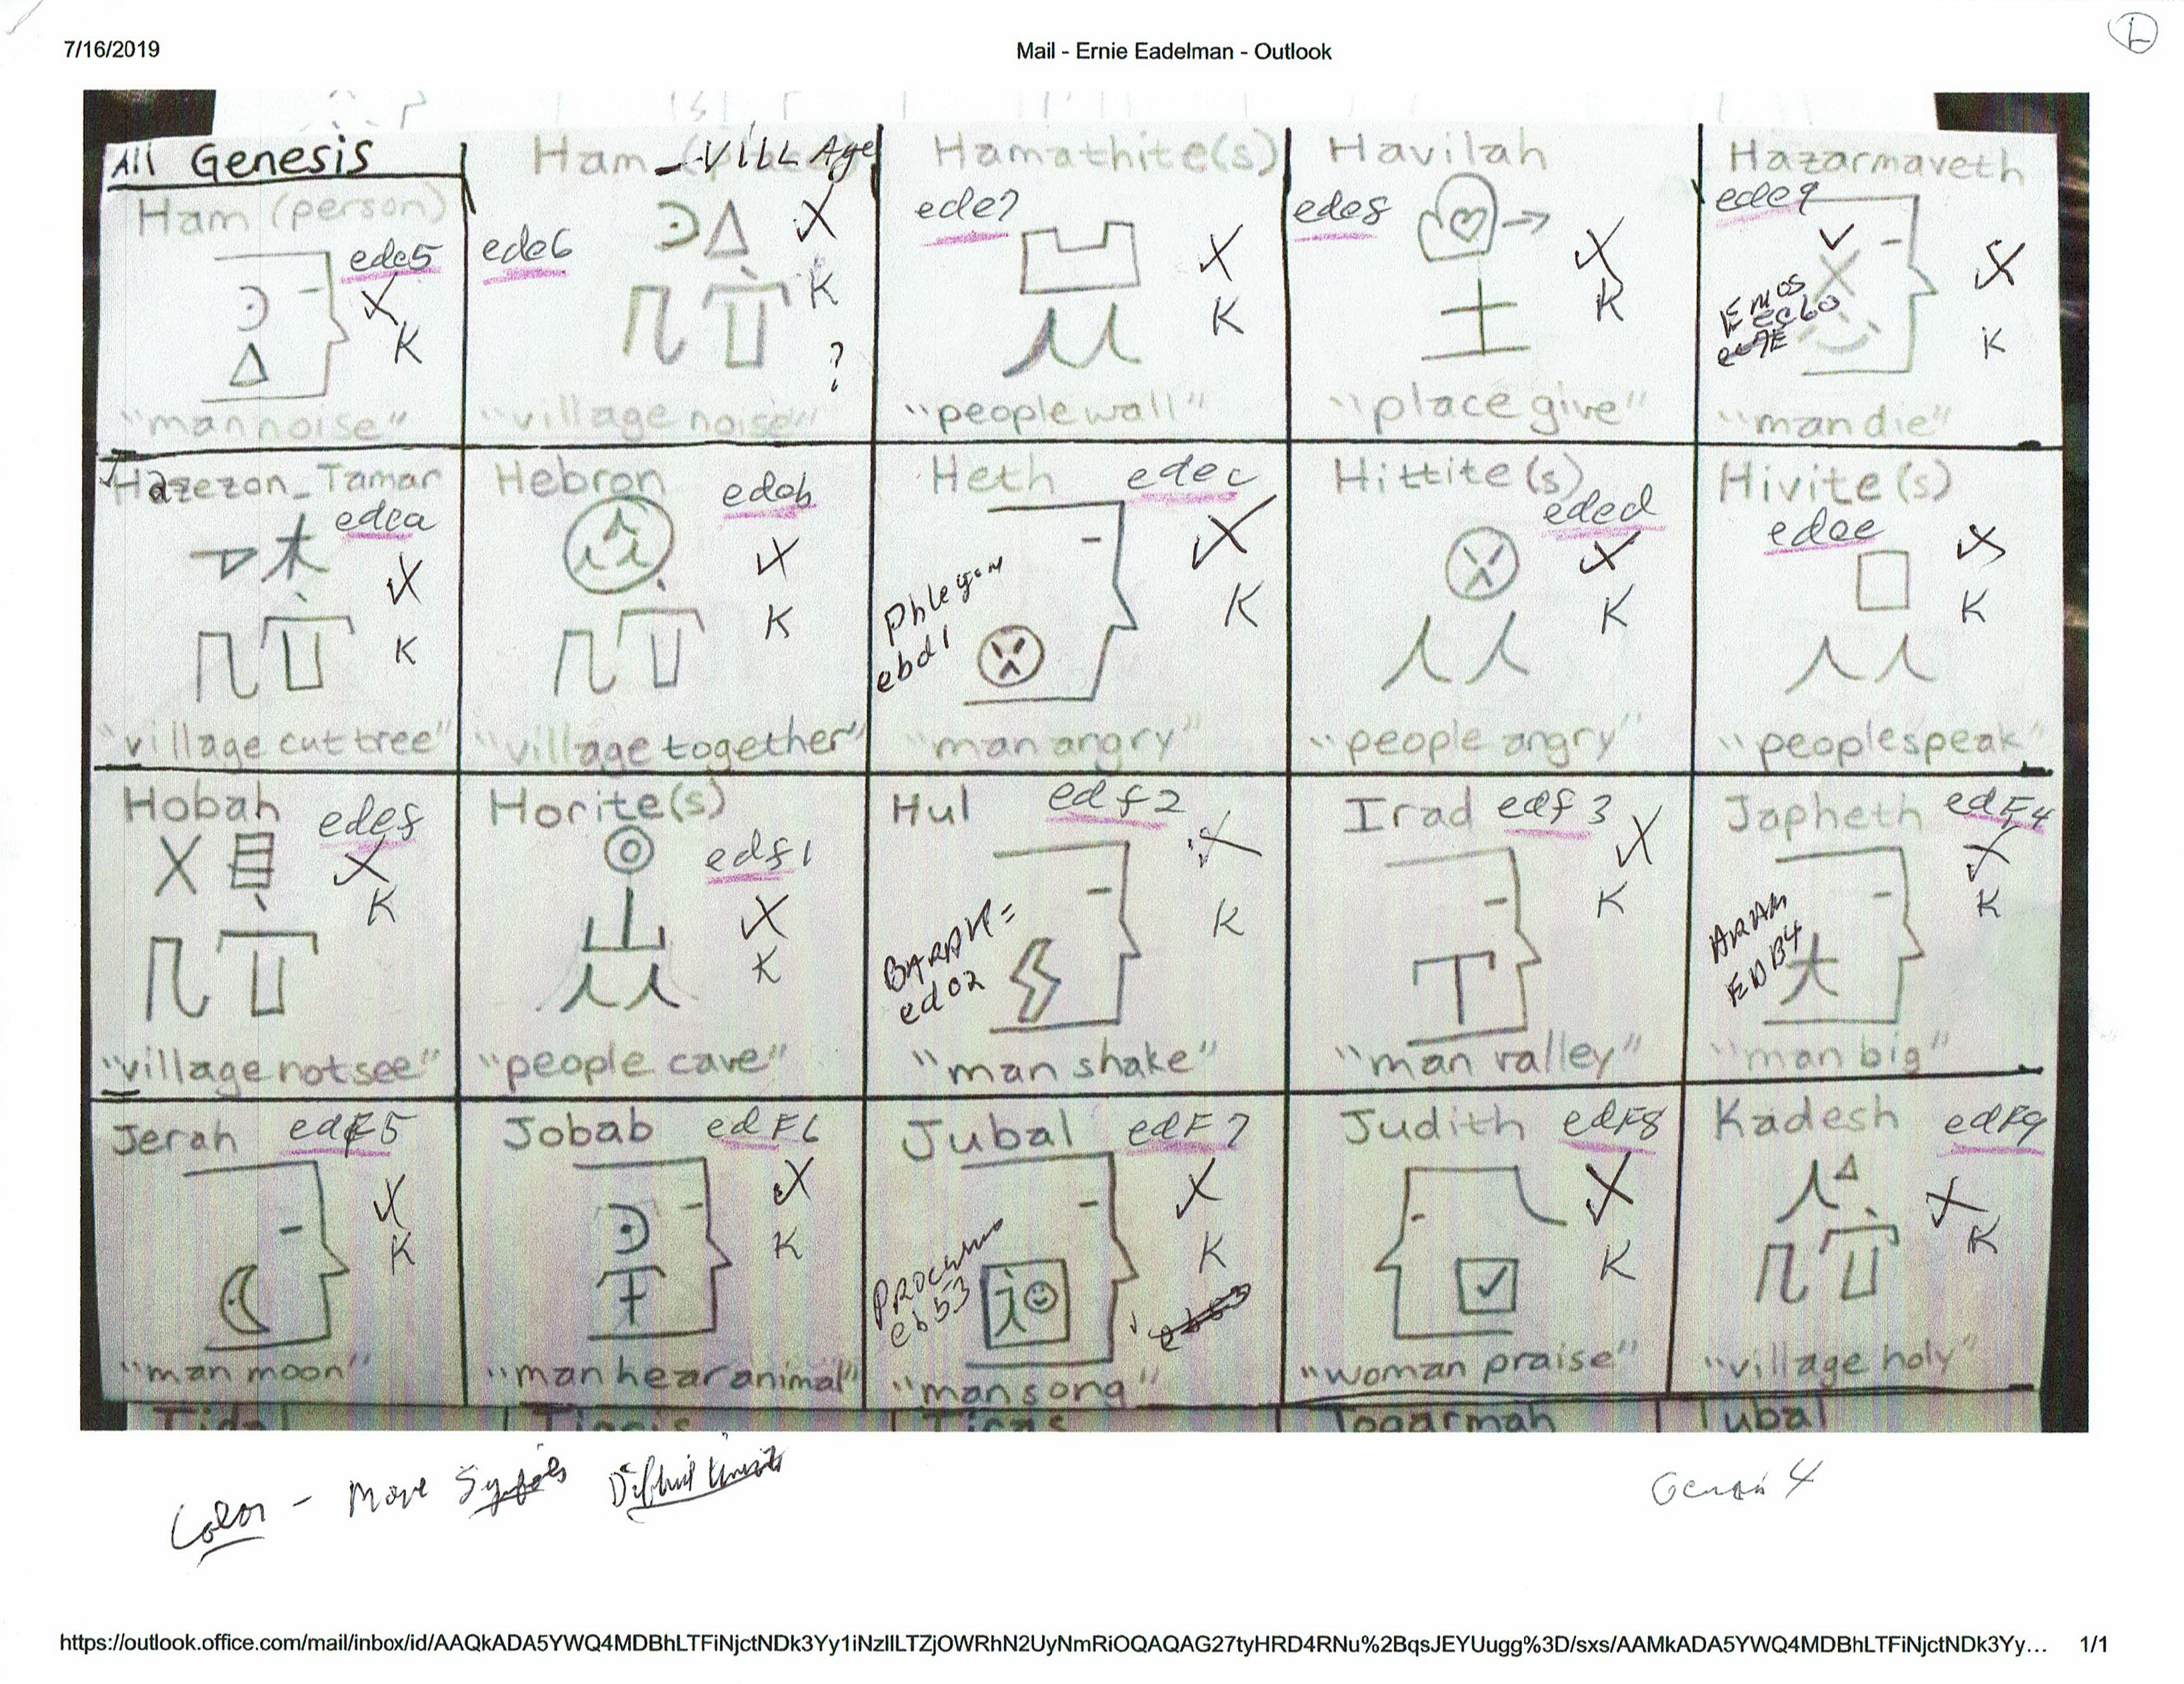 7/16/2019
Mail - Ernie Eadelman - Outlook
L
All Genesis
Ham (person)
ede5
X
K
"man noise"
Ham_VILLAge
ede6
X
K
?
"village noise"
Hamathite(s)
ede7
X
K
"people wall"
Havilah
ede8
X
K
"place give"
Hazarmaveth
ede9
X
Enos
ec60
K
"man die"
Hazezon_Tamar
edea
X
K
"village cut tree"
Hebron
edeb
X
K
"village together"
Heth
edec
X
Phlegon
ebd1
K
"man angry"
Hittite(s)
eded
X
K
"people angry"
Hivite(s)
edee
X
K
"people speak"
Hobah
edef
X
K
"village not see"
Horite(s)
edf1
X
K
"people cave"
Hul
edf2
X
K
ed02
"man shake"
Irad
edf3
X
K
"man valley"
Japheth
edF4
X
K
ARAM
EDB4
"man big"
Jerah
edF5
X
K
"man moon"
Jobab
edF6
X
K
"man hear animal"
Jubal
edF7
X
K
eb53
"man song"
Judith
edF8
X
K
"woman praise"
Kadesh
edF9
X
K
"village holy"
Tidal
Tigris
Tiras
Togarmah
Tubal
Color - Move Symbols
Genesis 4
https://outlook.office.com/mail/inbox/id/AAQkADA5YWQ4MDBhLTFiNjctNDk3Yy1iNzllLTZjOWRhN2UyNmRiOQAQAG27tyHRD4RNu%2BqsJEYUugg%3D/sxs/AAMkADA5YWQ4MDBhLTFiNjctNDk3Yy...
1/1